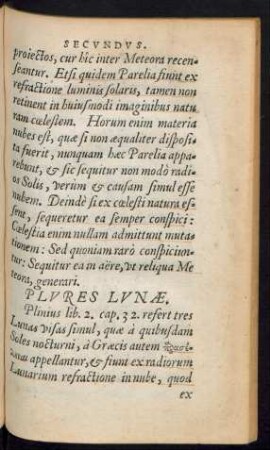 SECVNDVS.
proiectos, cur hîc inter Meteora recen-
seantur. Etsi quidem Parelia fiunt ex
refractione luminis solaris, tamen non
retinent in huiusmodi imaginibus natu
ram cœlestem. Horum enim materia
nubes est, quæ si non æqualiter disposi
ta fuerit, nunquam hæc Parelia appa-
rebunt, & sic sequitur non modò radi
os Solis, verum & causam simul esse
nubem. Deindè si ex cœlesti natura es-
sent, sequeretur ea semper conspici:
Cœlestia enim nullam admittunt muta-
tionem: Sed quoniam rarò conspiciun-
tur: Sequitur ea in aëre, vt reliqua Me
teora, generari.
PLVRES LVNÆ.
Plinius lib. 2. cap. 32. refert tres
Lunas visas simul, quæ à quibusdam
Soles nocturni, à Græcis autem
appellantur, & fiunt ex radiorum
Lunarium refractione in nube, quod
ex